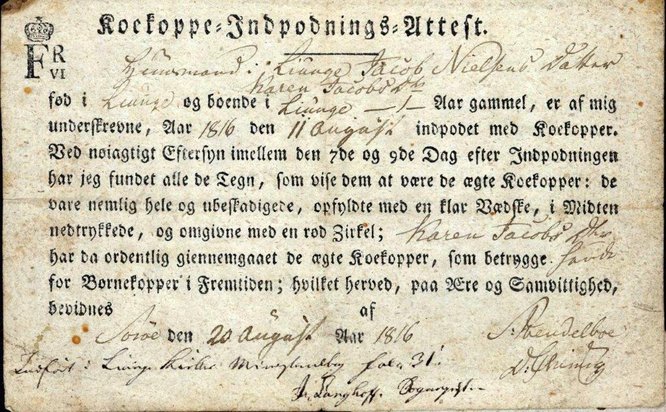 Koekoppe-Indpodnings-Attest.
F R VI
Huusmand i Liunge Jacob Nielsens Datter
Karen Jacobsdr
fød i Liunge og boende i Liunge – 1 – Aar gammel, er af mig
underskrevne, Aar 1816 den 11 August indpodet med Koekopper.
Ved nøiagtigt Eftersyn imellem den 7de og 9de Dag efter Indpodningen
har jeg fundet alle de Tegn, som vise dem at være de ægte Koekopper: de
vare nemlig hele og ubeskadigede, opfyldte med en klar Vædske, i Midten
nedtrykkede, og omgivne med en rød Zirkel; Karen Jacobsdtr
har da ordentlig giennemgaaet de ægte Koekopper, som betrygge
for Børnekopper i Fremtiden; hvilket herved, paa Ære og Samvittighed,
bevidnes af
Sorøe den 20 August Aar 1816
Indført i Liunge Kirkes Ministerialbog fol. 31.